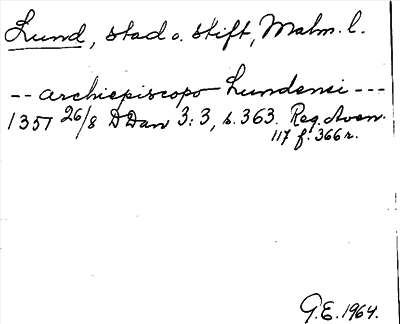 Lund, stad o. stift, Malm. l.
-- archiepiscopo Lundensi ---
1357 26/8 DDan 3:3, s. 363. Reg. Aven.
117 f. 366 r.
G.E. 1964.